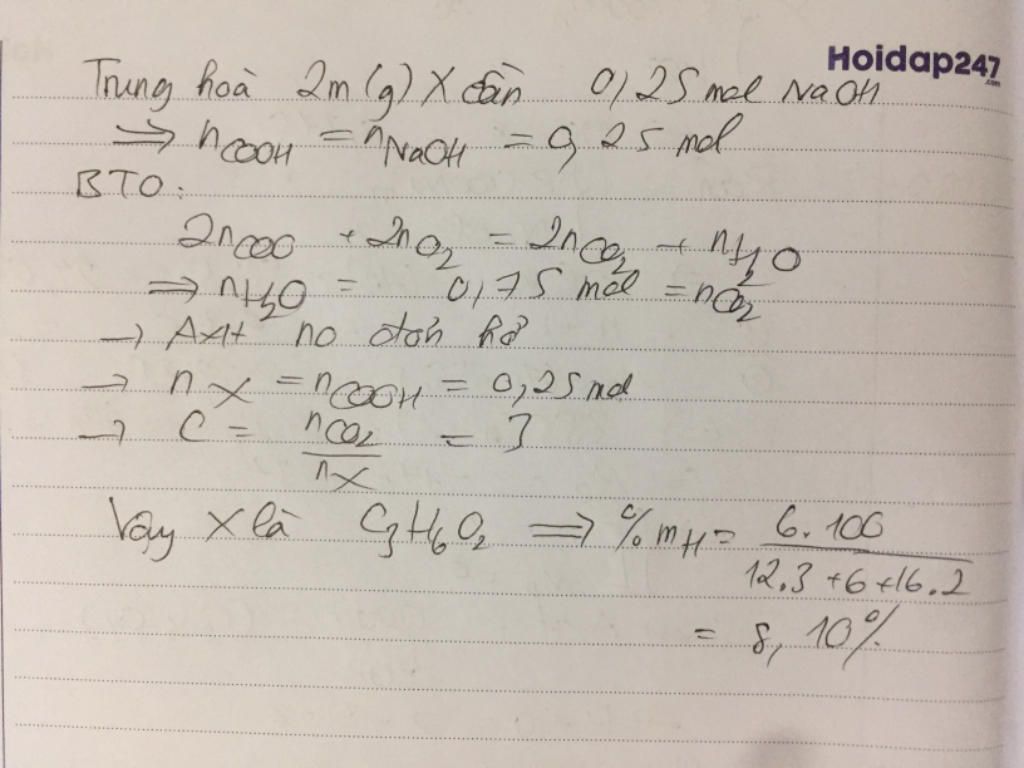 Hoidap247
.com
Trung hoà 2m (g) X cần 0,25 mol NaOH
⇒ nCOOH = nNaOH = 0,25 mol
BTO:
2nCOO + 2nO2 = 2nCO2 + nH2O
⇒ nH2O = 0,75 mol = nCO2
→ Axit no đơn hở
→ nX = nCOOH = 0,25 mol
→ C = nCO2 / nX = 3
Vậy X là C3H6O2 ⇒ %mH = 6.100 / 12.3 + 6 + 16.2
= 8,10%